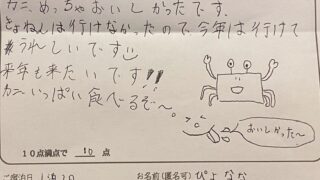 カニ、めっちゃおいしかったです。
きょねんは行けなかったので、今年は行けて
うれしいです
来年も来たいです!!
カニいっぱい食べるぞ〜
おいしかった〜
10点満点で 10 点
ご宿泊日
お名前(匿名可) ぴよなな